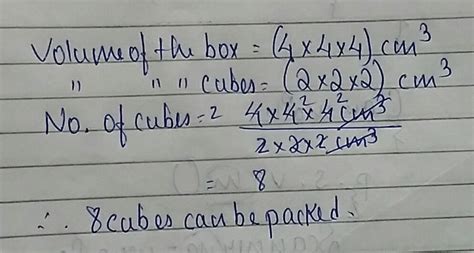 Volume of the box = (4×4×4) cm³
" " " cubes = (2×2×2) cm³
No. of cubes = 2 4×4²×4² cm³
2×2×2 cm³
= 8
∴ 8 cubes can be packed.